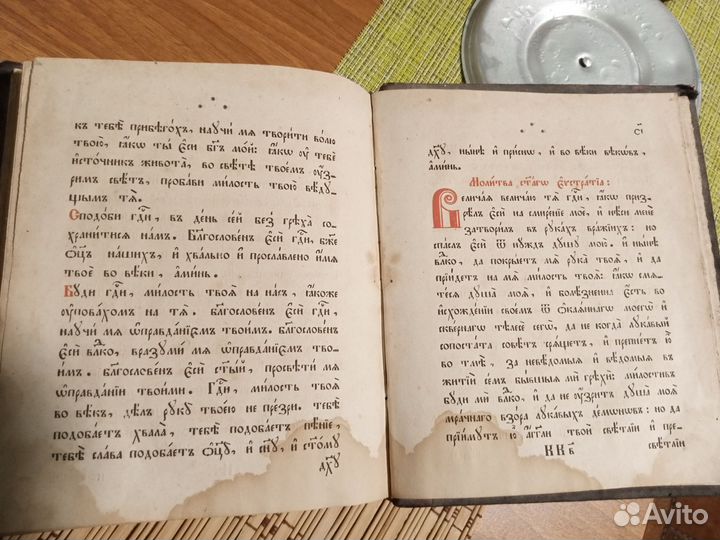 къ тебѣ прибѣгохъ, научи мя творити волю
твою, ꙗкѡ ты є҆си бг҃ъ мо́й: ꙗкѡ ᲂу҆ тебѐ
и҆сто́чникъ живота̀, во свѣ́тѣ твое́мъ ᲂу҆́з-
римъ свѣ́тъ, проба́ви ми́лость твою̀ вѣ́ду-
щымъ тѧ̀.
Сподо́би гдⷭ҇и, въ де́нь се́й без̾ грѣха̀ со-
храни́тисѧ на́мъ. Благослове́нъ є҆сѝ гдⷭ҇и, бж҃е
ѻ҆ц҃ъ на́шихъ, и҆ хва́льно и҆ просла́влено и҆́мѧ
твоѐ во вѣ́ки, а҆ми́нь.
Бу́ди гдⷭ҇и, ми́лость твоѧ̀ на на́съ, ꙗ҆́коже
ᲂу҆пова́хомъ на тѧ̀. Благослове́нъ є҆сѝ гдⷭ҇и,
научи́ мѧ ѡ҆правда́нїємъ твои́мъ. Благослове́нъ
є҆сѝ влⷣко, вразуми́ мѧ ѡ҆правда́нїємъ тво-
и́мъ. Благослове́нъ є҆сѝ ст҃ы́й, просвѣти́ мѧ
ѡ҆правда́нїи твои́ми. Гдⷭ҇и, ми́лость твоѧ̀
во вѣ́къ, дѣ́лъ рукꙋ̀ твоє́ю не пре́зри. тебѣ̀
подоба́етъ хвала̀, тебѣ̀ подоба́етъ пѣ́нїе,
тебѣ̀ сла́ва подоба́етъ ѻ҆ц҃ꙋ̀, и҆ сн҃ꙋ, и҆ ст҃о́мꙋ
дх҃ꙋ
с҃і
дх҃ꙋ, ны́нѣ и҆ при́снѡ, и҆ во вѣ́ки вѣкѡ́въ,
а҆ми́нь.
Моли́тва ст҃а́гѡ є҆ѵстра́тїа:
Велича́ѧ велича́ю тѧ̀ гдⷭ҇и, ꙗ҆́кѡ приз-
рѣ́лъ є҆сѝ на смире́нїе моѐ, и҆ нѣ́си менѐ
затвори́лъ в рука́хъ вра́жїихъ: но
спа́слъ є҆сѝ ѿ нꙋ́ждъ дꙋ́шꙋ мою̀. и҆ ны́нѣ
влⷣко, да покры́етъ мѧ̀ рꙋка̀ твоѧ̀, и҆ да
прїи́детъ на мѧ̀ ми́лость твоѧ̀: ꙗ҆́кѡ смѧ-
те́сѧ дꙋша̀ моѧ̀, и҆ болѣ́зненна є҆́сть во
и҆схожде́нїи свое́мъ ѿ ѻ҆каѧ́ннагѡ моегѡ̀ и҆
скве́рнагѡ тѣлесѐ сегѡ̀, да не когда̀ лꙋка́вый
сопоста́та совѣ́тъ срѧ́щетъ, и҆ препне́тъ ю҆
во тмѣ̀, за невѣ́домыѧ и҆ вѣ́домыѧ в
житїи́ се́мъ бы́вшыѧ мѝ грѣхѝ: ми́лостивъ
бу́ди мѝ влⷣко, и҆ да не ᲂу҆́зритъ дꙋша̀ моѧ̀
мра́чнагѡ взо́ра лꙋка́выхъ де́мѡнѡвъ: но да
прїи́мꙋтъ ю҆ а҆́гг҃ли твоѝ свѣ́тлїи и҆ пре-
К К в
свѣ́тлїи
Avito